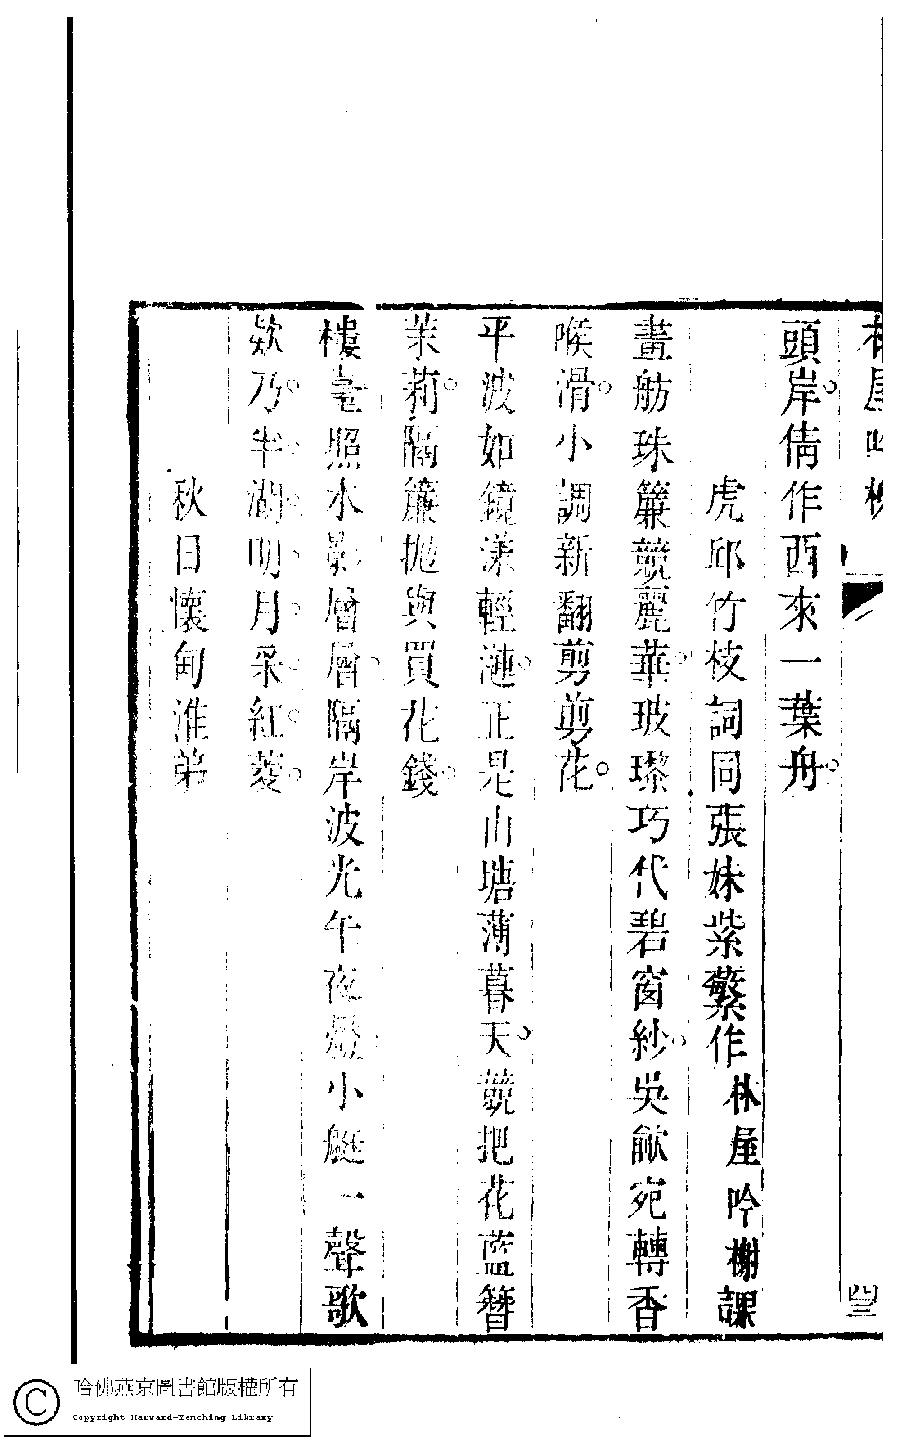 林屋吟榭
四三
頭岸倩作西來一葉舟
虎邱竹枝詞同張妹紫蘩作林屋吟榭課
畫舫珠簾競麗華玻瓈巧代碧窗紗吳歈宛轉香
喉滑小調新翻剪剪花
平波如鏡漾輕漣正是山塘薄暮天競把花藍簪
茉莉隔簾拋與買花錢
樓臺照水影層層隔岸波光午夜燈小艇一聲歌
欵乃半湖明月采紅菱
秋日懷甸淮弟
哈佛燕京圖書館版權所有
Copyright Harvard-Yenching Library